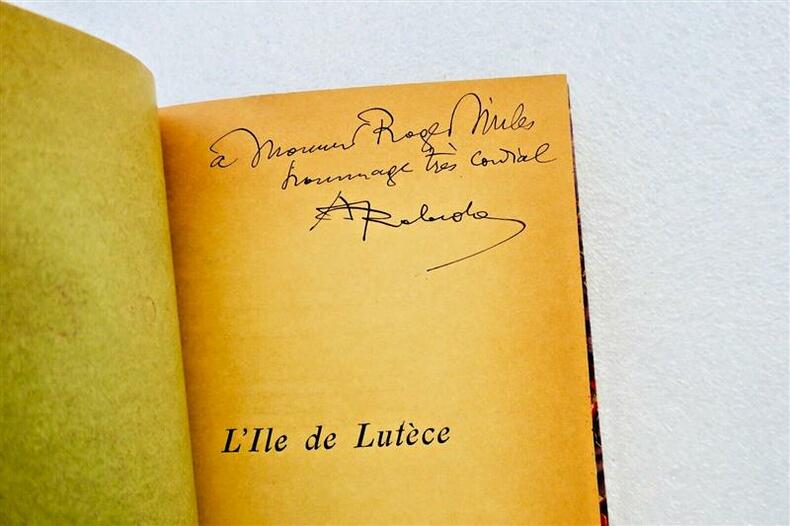 à Monsieur Roger Miles
hommage très cordial
A Robida
L'Ile de Lutèce